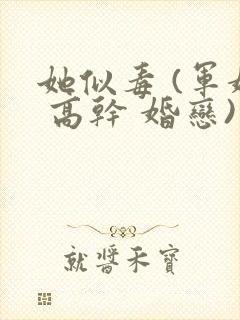 她似毒(軍
高幹 婚戀)
就醬禾寶